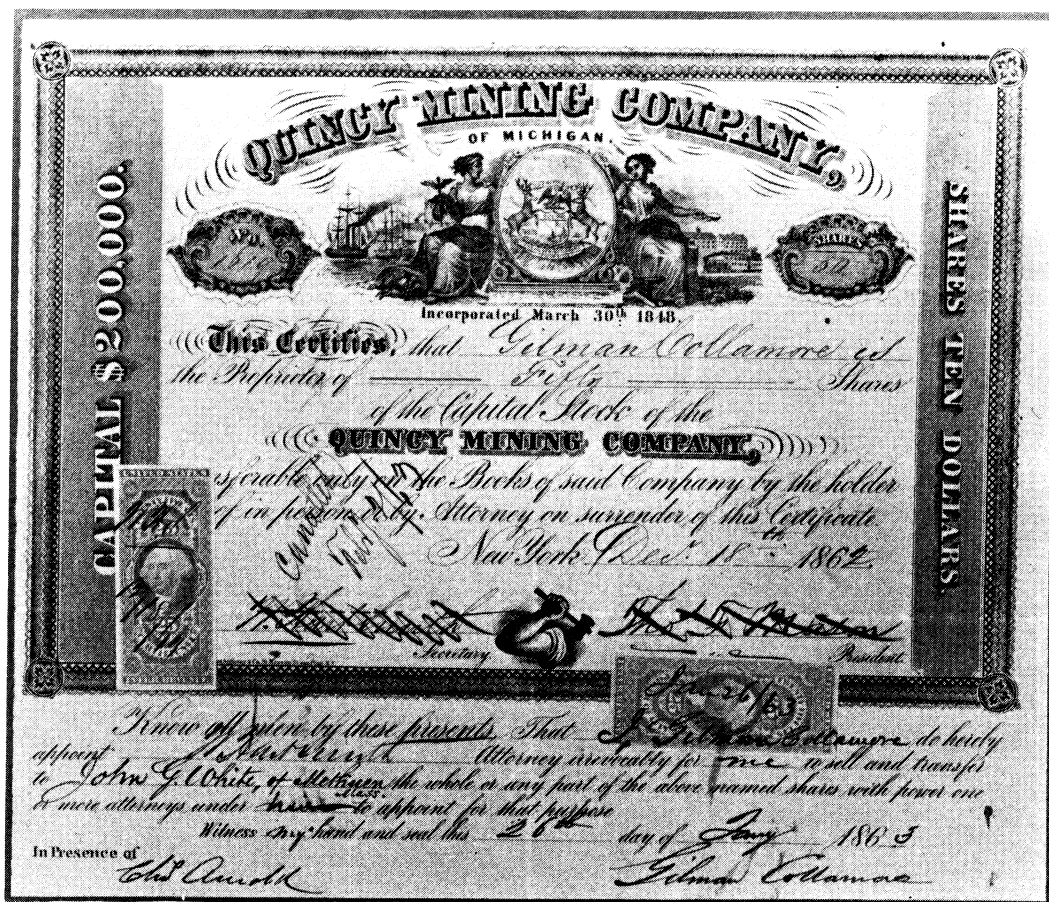 QUINCY MINING COMPANY,
OF MICHIGAN.
CAPITAL $200,000.
SHARES TEN DOLLARS.
No.
SHARES
50
Incorporated March 30th 1848.
This Certifies, that Gilman Collamore is
the Proprietor of Fifty Shares
of the Capital Stock of the
QUINCY MINING COMPANY,
sferable only on the Books of said Company by the holder
of in person or by Attorney on surrender of this Certificate
New York Decr 18th 1862
Cancelled
Secretary.
President.
UNITED STATES
Jan 26/63
Know all men by these presents, That I, Gilman Collamore do hereby
appoint Attorney irrevocably for me to sell and transfer
to John G. White, of Methuen Mass. the whole or any part of the above named shares with power one
or more attorneys under him to appoint for that purpose
Witness my hand and seal this 26th day of Jany 1863
In Presence of
Chs Arnold
Gilman Collamore